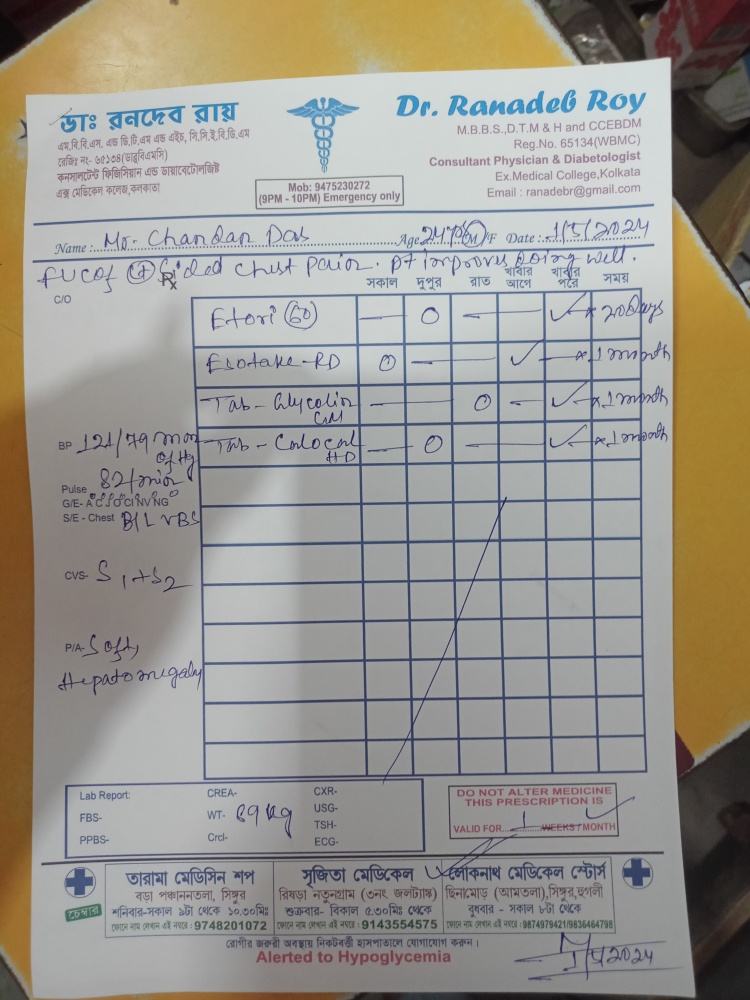 ডাঃ রনদেব রায়
এম.বি.বি.এস. এন্ড ডি.টি.এম এন্ড এইচ, সি.সি.ই.বি.ডি.এম
রেজিঃ নং- ৬৫১৩৪(ডাব্লুবিএমসি)
কনসালটেন্ট ফিজিসিয়ান এন্ড ডায়াবেটোলজিষ্ট
এক্স মেডিকেল কলেজ,কলকাতা
Mob: 9475230272
(9PM - 10PM) Emergency only
Dr. Ranadeb Roy
M.B.B.S.,D.T.M & H and CCEBDM
Reg.No. 65134(WBMC)
Consultant Physician & Diabetologist
Ex.Medical College,Kolkata
Email : ranadebr@gmail.com
Name : Mr. Chandan Das Age 24 M/F Date : 1/5/2024
FUC of sided chest pain. Pt improves doing well.
C/O Rx সকাল দুপুর রাত খাবার আগে খাবার পরে সময়
Etori 60 — 0 — ✓ × 20 Days
Esotake-RD 0 — ✓ — × 1 month
Tab - Glycolin — 0 - ✓ × 1 month
Tab - Calocal HD — 0 — ✓ × 1 month
BP 121/79 mm of Hg
Pulse 82/min
G/E- A C J O CI NV NG
S/E - Chest B/L VBS
CVS- S1+S2
P/A- Soft,
Hepatomegaly
Lab Report: CREA- CXR-
FBS- WT- 89 kg USG-
TSH-
PPBS- Crcl- ECG-
DO NOT ALTER MEDICINE
THIS PRESCRIPTION IS
VALID FOR 1 WEEKS / MONTH
চেম্বার
তারামা মেডিসিন শপ
বড়া পঞ্চাননতলা, সিঙ্গুর
শনিবার-সকাল ৯টা থেকে ১০.৩০মিঃ
ফোনে নাম লেখান এই নম্বরে : 9748201072
সৃজিতা মেডিকেল
রিষড়া নতুনগ্রাম (৩নং জলট্যাঙ্ক)
শুক্রবার- বিকাল ৫.৩০মিঃ থেকে
ফোনে নাম লেখান এই নম্বরে : 9143554575
লোকনাথ মেডিকেল স্টোর্স
ছিনামোড় (আমতলা),সিঙ্গুর,হুগলী
বুধবার - সকাল ৮টা থেকে
ফোনে নাম লেখান এই নম্বরে : 9874979421/9836464798
রোগীর জরুরী অবস্থায় নিকটবর্তী হাসপাতালে যোগাযোগ করুন।
Alerted to Hypoglycemia
1/5/2024